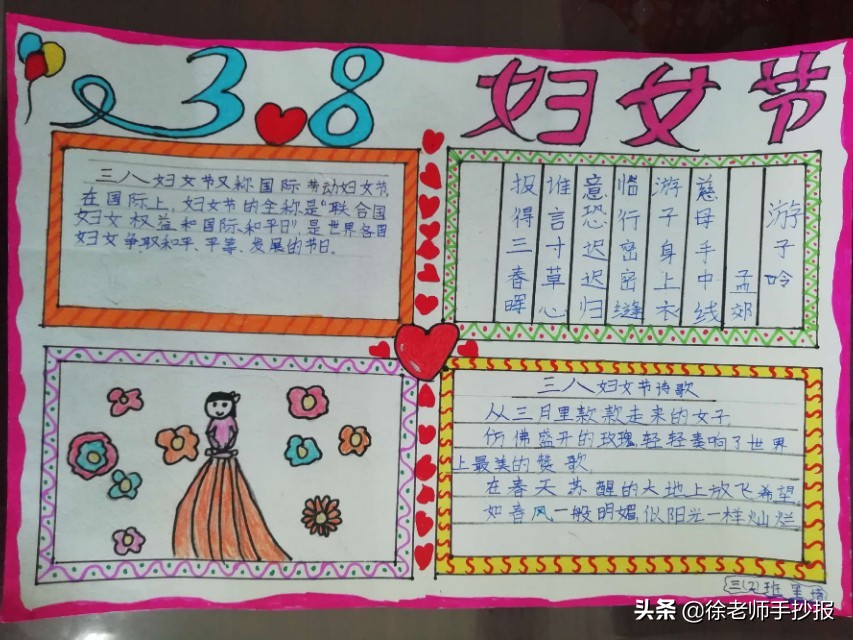 3 8 妇女节
三八妇女节又称国际劳动妇女节,
在国际上,妇女节的全称是"联合国
妇女权益和国际和平日",是世界各国
妇女争取和平、平等、发展的节日.
游子吟
孟郊
慈母手中线
游子身上衣
临行密密缝
意恐迟迟归
谁言寸草心
报得三春晖
三八妇女节诗歌
从三月里款款走来的女子,
仿佛盛开的玫瑰,轻轻奏响了世界
上最美的赞歌,
在春天苏醒的大地上放飞希望,
如春风一般明媚,似阳光一样灿烂
三(2)班
头条 @徐老师手抄报